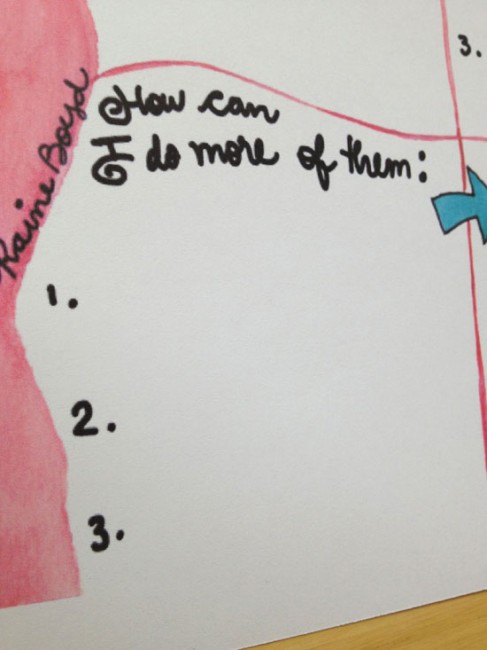 3.
How can
I do more of them:
Raine Boyd
1.
2.
3.